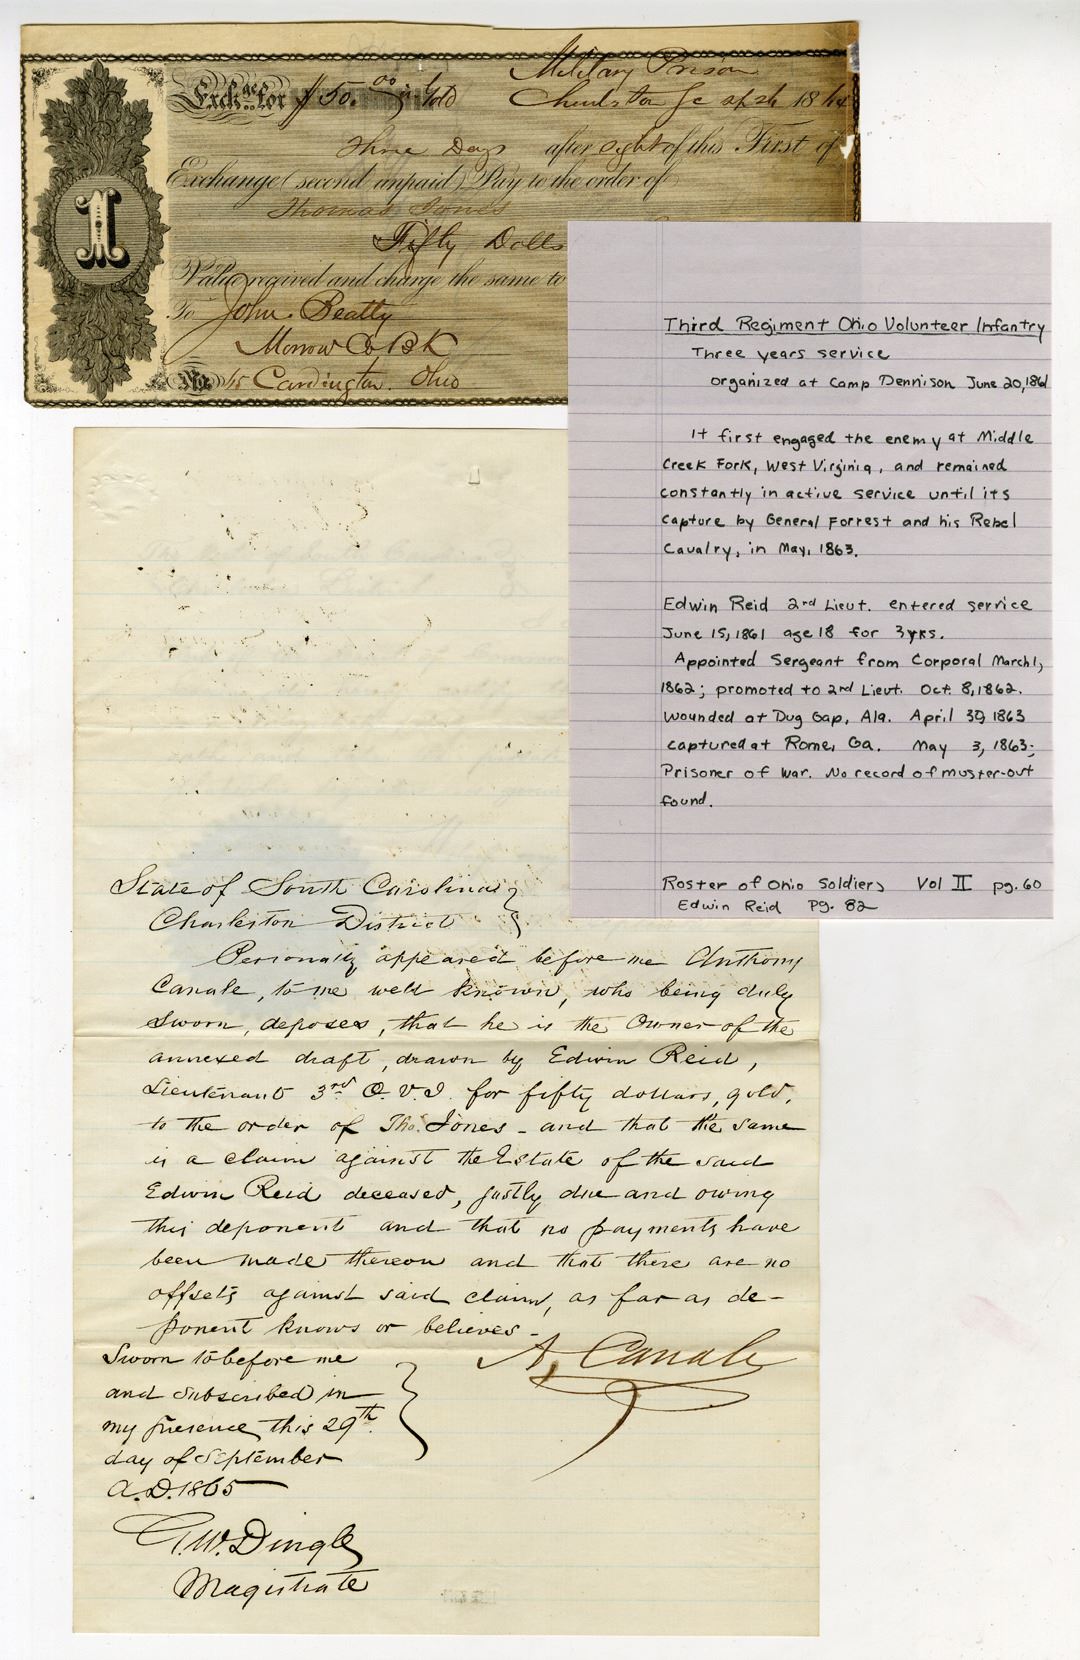 Military Prison
Exch.ge for $50.00 Gold Charleston SC Sept 26 1864
Three Days after sight of this First of
Exchange (second unpaid) Pay to the order of
Thomas Jones
Fifty Dolls
Value received and charge the same to
To John Beatty
Morrow Co BK
No. 15 Cardington. Ohio
1
Third Regiment Ohio Volunteer Infantry
Three years service
organized at Camp Dennison June 20, 1861
It first engaged the enemy at Middle
Creek Fork, West Virginia, and remained
constantly in active service until its
capture by General Forrest and his Rebel
Cavalry, in May, 1863.
Edwin Reid 2nd Lieut. entered service
June 15, 1861 age 18 for 3yrs.
Appointed Sergeant from Corporal March 1,
1862; promoted to 2nd Lieut. Oct. 8, 1862.
Wounded at Dug Gap, Ala. April 30, 1863
captured at Rome, Ga. May 3, 1863;
Prisoner of War. No record of muster-out
found.
Roster of Ohio Soldiers Vol II pg. 60
Edwin Reid Pg. 82
State of South Carolina }
Charleston District }
Personally appeared before me Anthony
Canale, to me well known, who being duly
Sworn, deposes, that he is the Owner of the
annexed draft, drawn by Edwin Reid,
Lieutenant 3rd O.V.I. for fifty dollars, gold,
to the order of Tho. Jones - and that the same
is a claim against the Estate of the said
Edwin Reid deceased, justly due and owing
this deponent and that no payments have
been made thereon and that there are no
offsets against said claim, as far as de-
ponent knows or believes -
Sworn to before me
and subscribed in
my presence, this 29th
day of September
A.D. 1865
A, Canale
G.W. Dingle
Magistrate